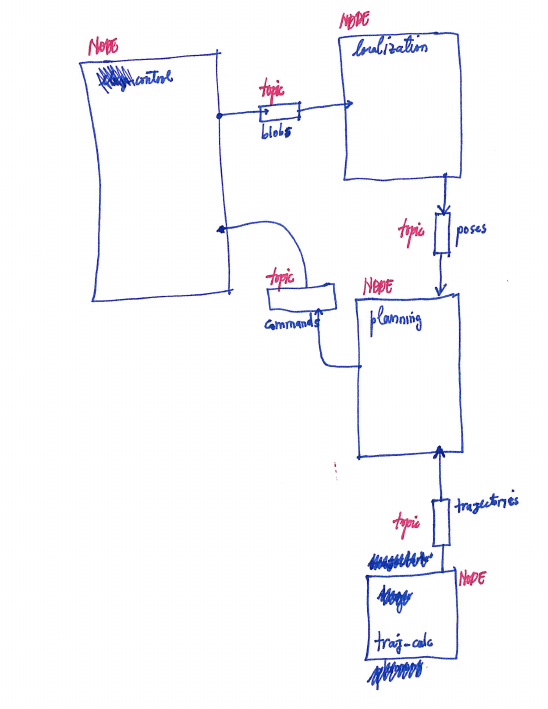 NODE
control
NODE
localization
topic
blobs
topic
poses
topic
commands
NODE
planning
topic
trajectories
NODE
traj-calc